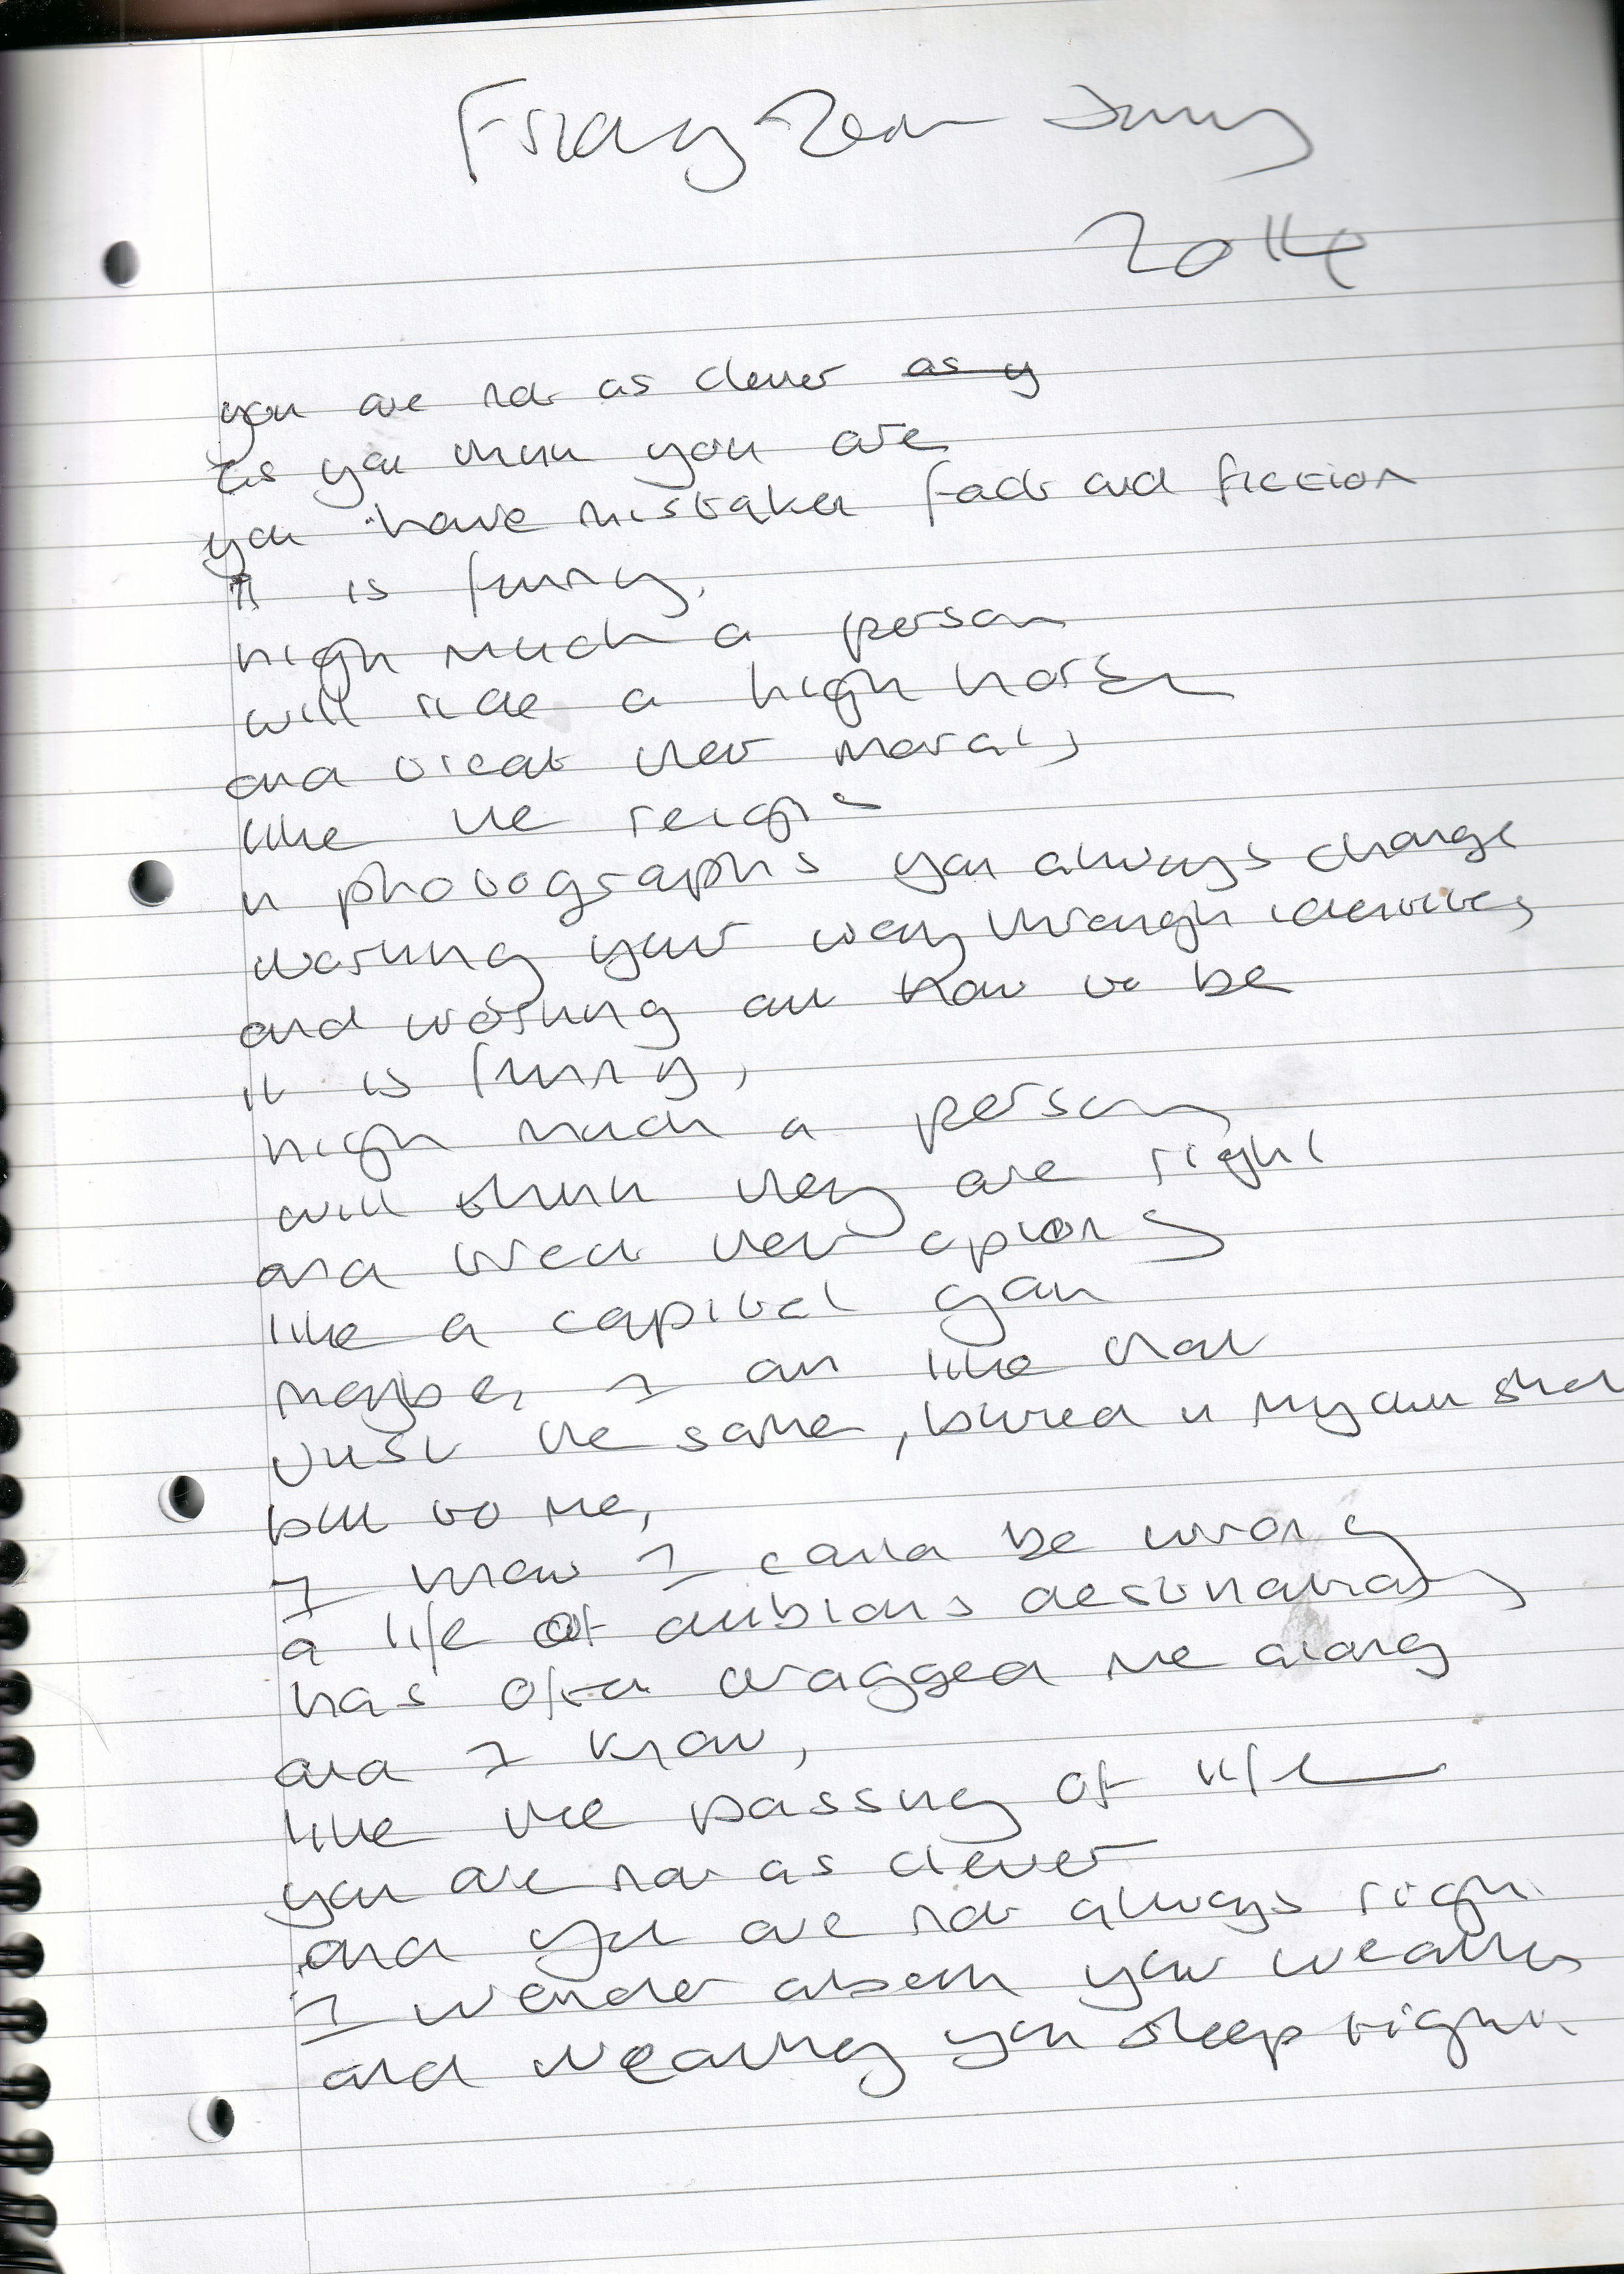 Friday 2014
you are not as clever as y
as you think you are
you have mistaken fact and fiction
it is funny,
high much a person
will ride a high horse
and treat their morals
like the reign
in photographs you always change
working your way through identities
and working out how to be
it is funny,
high much a person
will think they are right
and treat their opinions
like a capital gain
maybe, I am like that
Just the same, buried in my own
but to me,
I know I could be wrong
a life of dubious destinations
has often dragged me along
and I know,
like the passing of life
you are not as clever
and you are not always right
I wonder about your
and you sleep tight